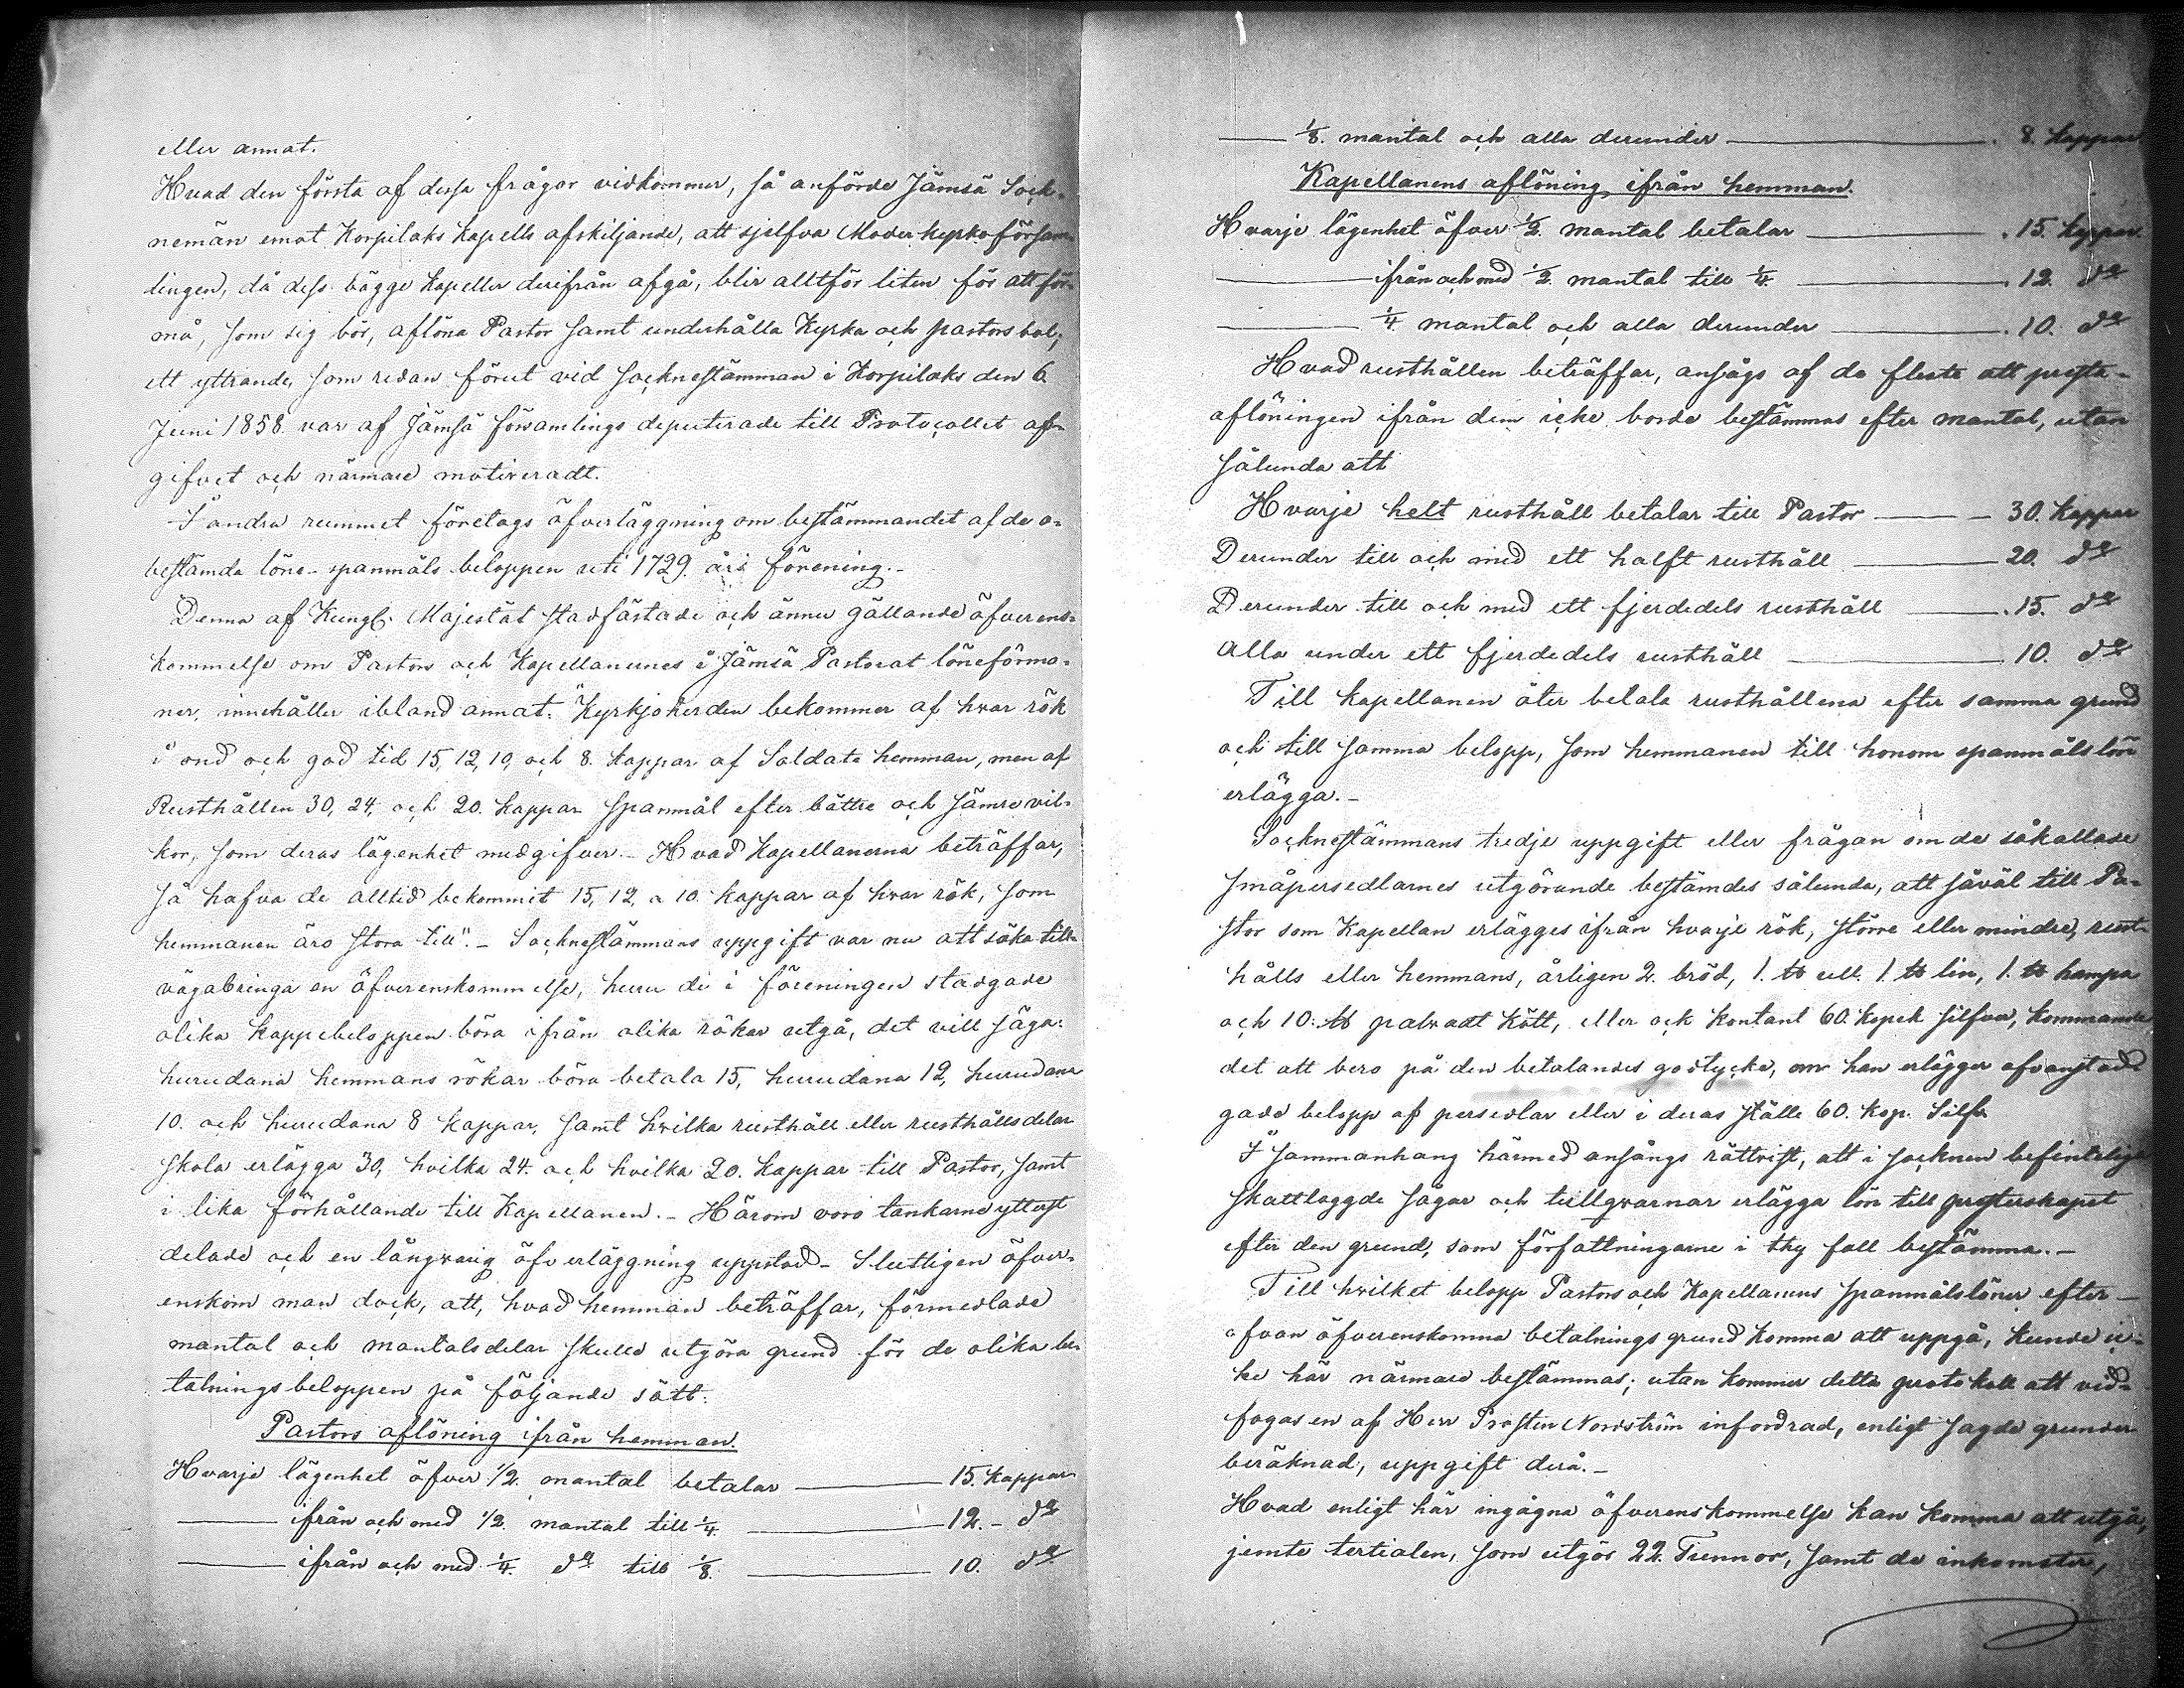 eller annat.
Hvad den första af dessa frågor vidkommer, så anförde Jämsä Sock-
nemän emot Korpilaks Kapells afskiljande, att sjelfva Moder-kyrko församm-
lingen, då dess bägge Kapeller derifrån afgå, blir alltför liten för att för-
må, som sig bör, aflöna Pastor samt underhålla Kyrka och pastors bol,
ett yttrande, som redan förut vid sockneftämman i Korpilaks den 6
Juni 1858 var af Jämsä församlings deputerade till Protocollet af-
gifvet och närmare motiveradt.
I andra rummet företogs öfverläggning om bestämmandet af de o-
bestämda löne-spanmåls beloppen uti 1729. års förening.-
Denna af Kungl. Majestät stadfästade och ännu gällande öfverens-
kommelse om Pastors och Kapellanernes i Jämsä Pastorat löneförmo-
ner, innehåller ibland annat: "Kyrkjoherden bekommer af hvar rök
i ond och god tid 15, 12, 10, och 8. kappar af Soldate hemman, men af
Rusthållen 30, 24, och 20. kappar spanmål efter bättre och sämre vil-
kor, som deras lägenhet medgifver.- Hvad Kapellanerna beträffar,
så hafva de alltid bekommit 15, 12, a 10 kappar af hvar rök, som
hemmanen äro stora till".- Socknestämmans uppgift var nu att söka till-
vägabringa en öfverenskommelse, huru de i föreningen stadgade
olika kappebeloppen böra ifrån olika rökar utgå, det vill säga:
hurudana hemmans rökar böra betala 15, hurudana 12, hurudana
10. och hurudana 8 kappar, samt hvilka rusthåll eller rusthållsdelar
skola erlägga 30, hvilka 24. och hvilka 20. kappar till Pastor, samt
i lika förhållande till Kapellanen.- Härom voro tankarne ytterst
delade och en långvarig öfverläggning uppstod.- Slutligen öfver-
enskom man dock, att, hvad hemman beträffar, förmedlade
mantal och mantalsdelar skulle utgöra grund för de olika be-
talningsbeloppen på följande sätt:
Pastors aflöning ifrån hemman.
Hvarje lägenhet öfver 1/2. mantal betalar — 15. kappar
— ifrån och med 1/2. mantal till 1/4. — 12.- do
— ifrån och med 1/4. do till 1/8. — 10. do
— 1/8. mantal och alla derunder — 8. kappar
Kapellanens aflöning ifrån hemman.
Hvarje lägenhet öfver 1/2. mantal betalar — 15. kappar.
— ifrån och med 1/2. mantal till 1/4. — 12. do
— 1/4 mantal och alla derunder — 10. do
Hvad rusthållen beträffar, ansågs af de flesta att preste-
aflöningen ifrån dem icke borde bestämmas efter mantal, utan
sålunda att
Hvarje helt rusthåll betalar till Pastor — 30. kappar
Derunder till och med ett halft rusthåll — 20. do
Derunder till och med ett fjerdedels rusthåll — 15. do
Alla under ett fjerdedels rusthåll — 10. do
Till kapellanen åter betala rusthållena efter samma grund
och till samma belopp, som hemmanen till honom spanmålslön
erlägga.-
Socknestämmans tredje uppgift eller frågan om de såkallade
småpersedlarnes utgörande bestämdes sålunda, att såväl till Pa-
stor som Kapellan erlägges ifrån hvarje rök, större eller mindre, rust-
hålls eller hemmans, årligen 2. bröd, 1. ℔ ull. 1. ℔ lin, 1. ℔ hampa
och 10. ℔ palvadt Kött, eller ock kontant 60. kopek silfver, kommande
det att bero på den betalandes godtycke, om han erlägger ofvanstad-
gade belopp af persedlar eller i deras ställe 60. kop. Silfr
I sammanhang härmed ansågs rättvist, att i socknen befintelige
skattlaggde sågar och tullqvarnar erlägga lön till presterskapet
efter den grund, som författningarne i thy fall bestämma.-
Till hvilket belopp Pastors och Kapellanens spanmålslöner efter
ofvan öfverenskomna betalningsgrund komma att uppgå, kunde ic-
ke här närmare bestämmas; utan kommer detta protokoll att vid-
fogas en af Herr Prosten Nordström infordrad, enligt sagde grunder
beräknad, uppgift derå.-
Hvad enligt här ingågna öfverenskommelse kan komma att utgå,
jemte tertialen, som utgör 22. Tunnor, samt de inkomster,